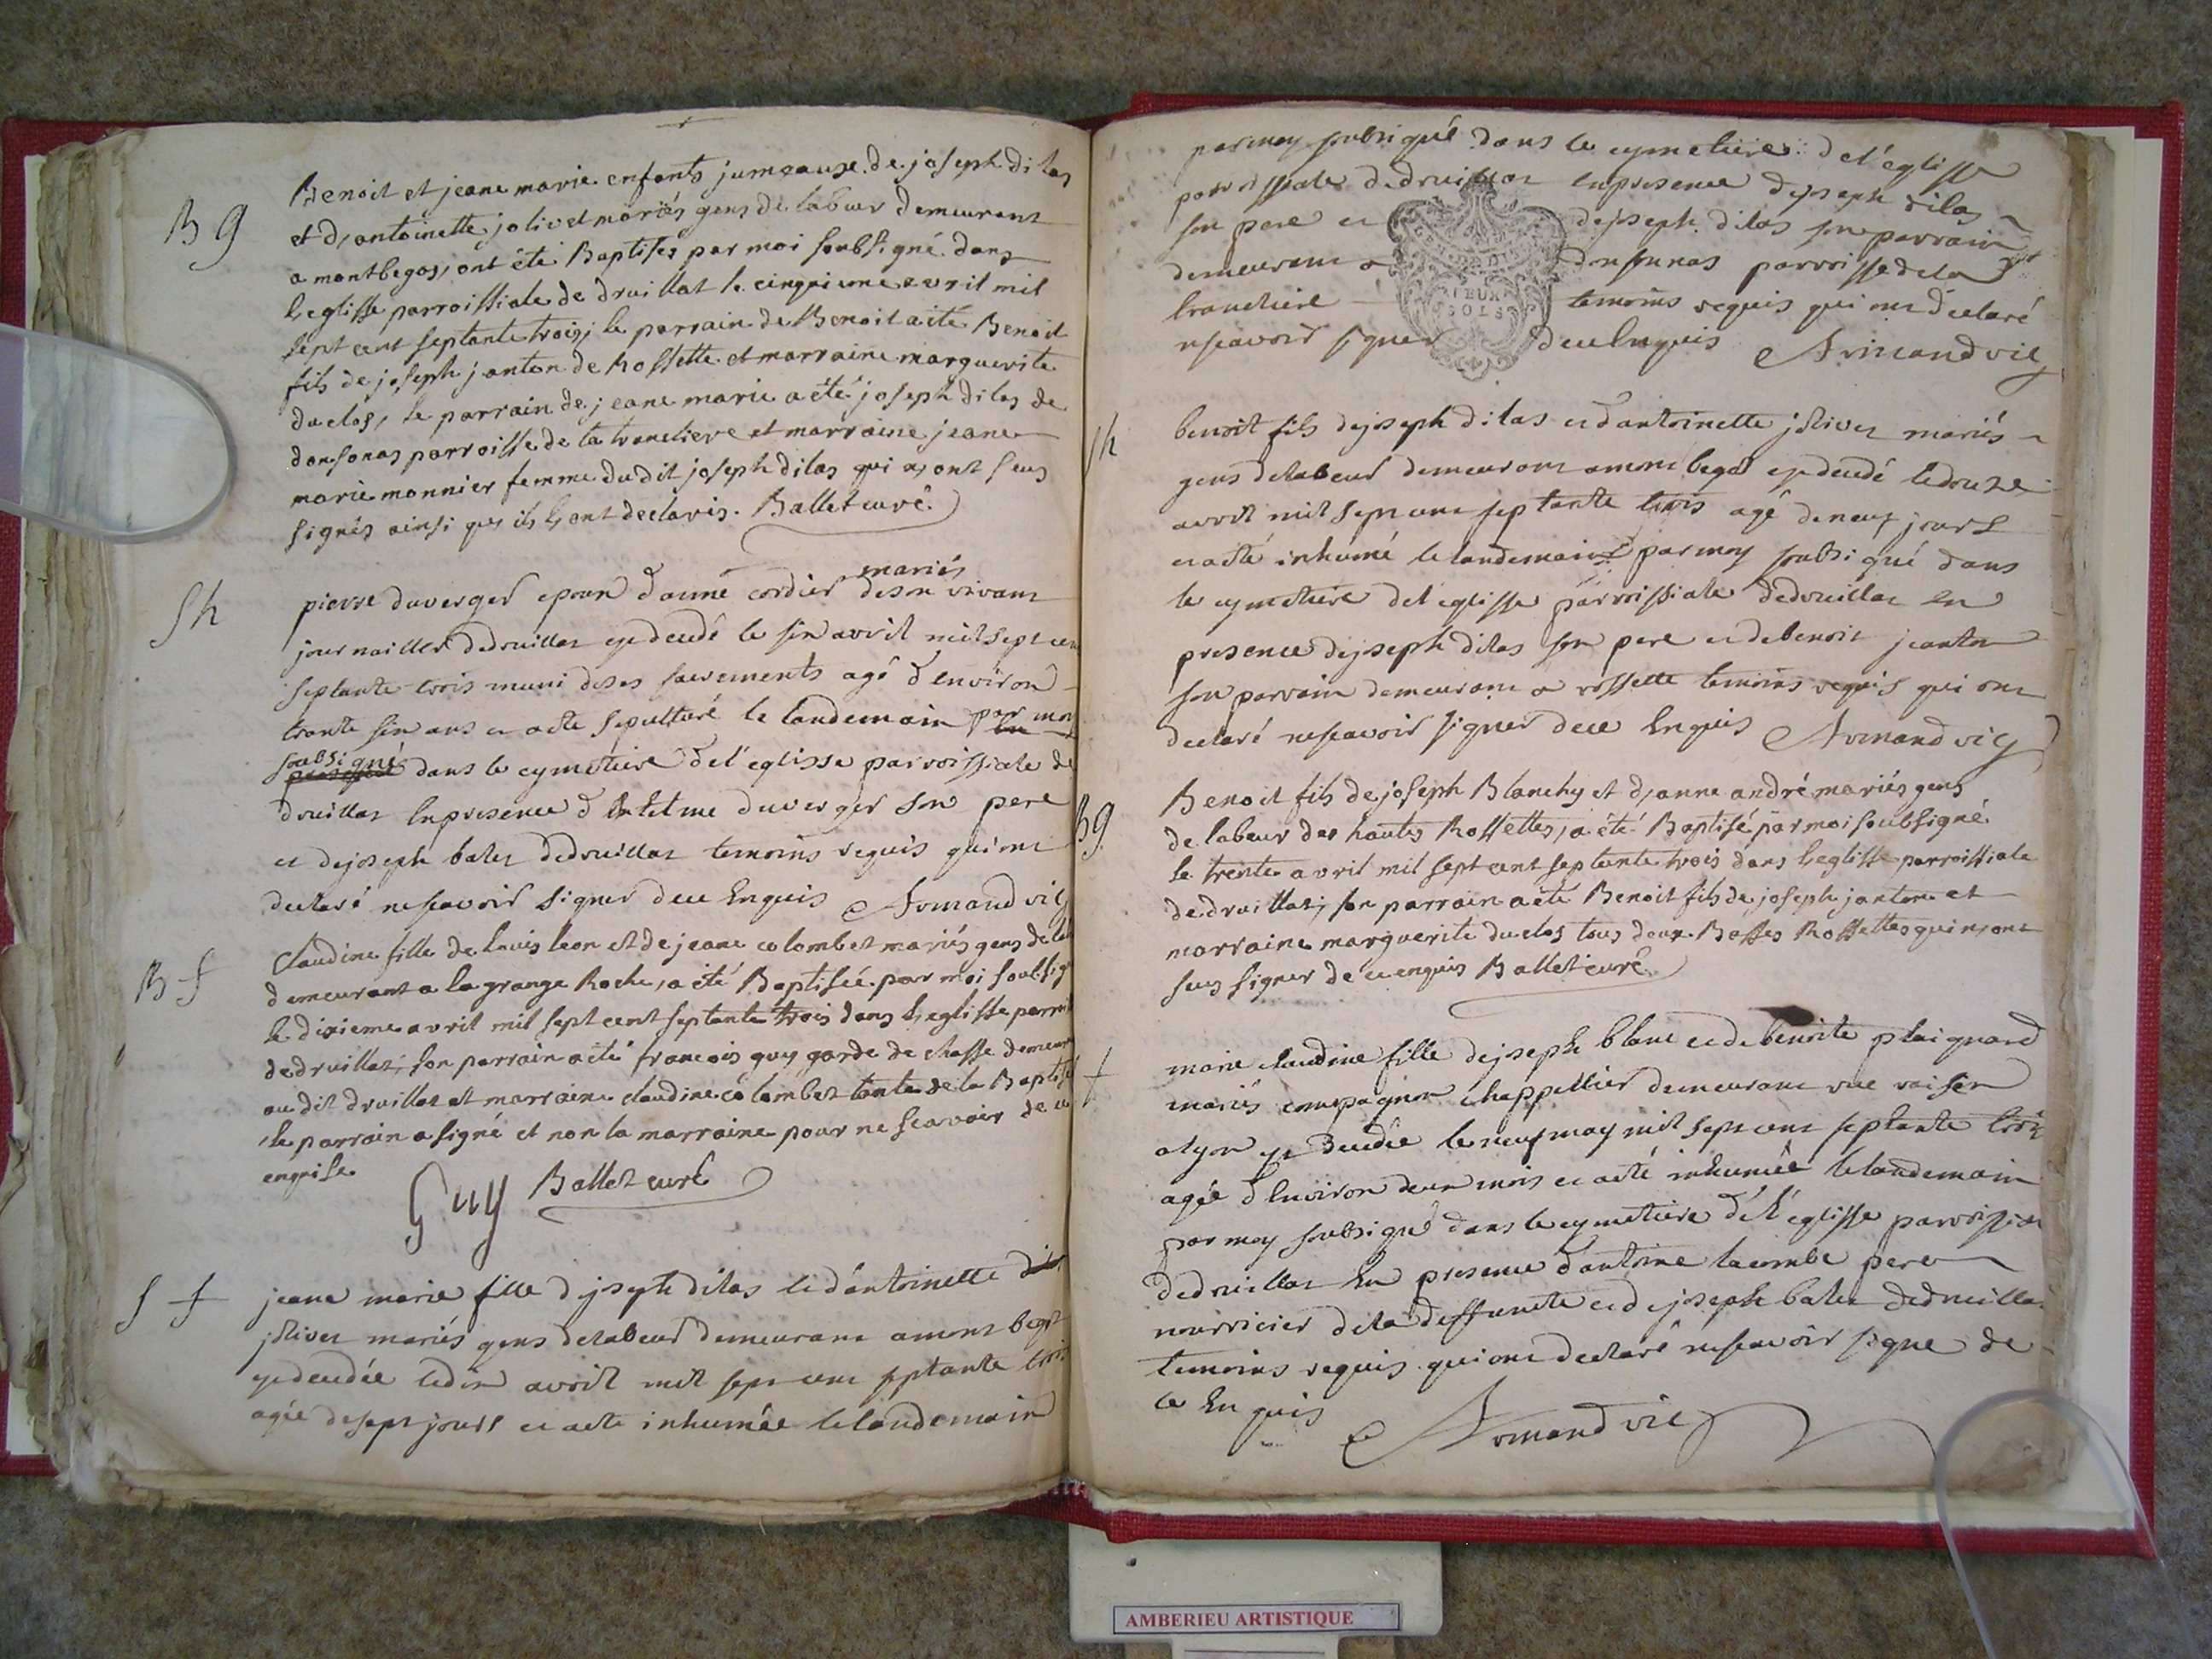 B g
Benoit et jeane marie enfants jumeaux de joseph dilas
et d'antoinette jolivet mariés gens de labeur demeurant
a montbegos, ont été Baptises par moi soubsigné dans
l'eglisse parroissiale de druillat le cinquieme avril mil
sept cent septante trois, le parrain de Benoit a été Benoit
fils de joseph janton de Rossette et marraine marguerite
duclos, le parrain de jeane marie a été joseph dilas de
donsonas parroisse de la traneliere et marraine jeane
marie monnier femme dudit joseph dilas qui n'ont seus
signés ainsi que ils l'ont declarés. Ballet curé
Sh
mariés
pierre duverger epoux d'aimé cordier de son vivant
journaillier dedruillat es decedé le sin avril mil sept cen
septante trois muni de ses sacrements agé d'environ
trante sin ans et a eté sepulturé le landemain par moy
soubsigné dans le cymetiere de l'eglisse parroissiale de
druillat en presence d'entelme duverger son pere
et de joseph balet dedruillat temoins requis qui ont
declaré ne scavoir signer de ce enquis Armand vic
B f
Claudine fille de louis leon et de jeane colombet mariés gens de la
demeurant a la grange Roche, a été Baptisée par moi soubsig
le dixieme avril mil sept cent septante trois dans l'eglisse parroi
de druillat; son parrain a été francois guy garde de chasse demeur
au dit druillat et marraine claudine colombet tante de la Baptisé
le parrain a signé et non la marraine pour ne scavoir de ce
enquise
Guy Ballet curé
S f
jeane marie fille de joseph dilas et d'antoinette
jolivet mariés gens de labeur demeurant a mont begot
es decedée le dix avril mil sept cent septante trois
agée de sept jours et a eté inhumée le landemain
par moy soubsigné dans le cymetiere de l'eglisse
parroissiale dedruillat en presence de joseph dilas
son pere et de joseph dilas son parrain
demeurant a donsunas parroisse de la
traneliere temoins requis qui ont declaré
ne scavoir signer de ce enquis Armand vic
Sh
benoit fils de joseph dilas et d'antoinette jolivet mariés
gens de labeur demeurant a mont begot es decedé le douze
avril mil sept cent septante trois agé de neuf jours
et a eté inhumé le landemain par moy soubsigné dans
le cymetiere de l'eglisse parroissiale dedruillat en
presence de joseph dilas son pere et de benoit jeanton
son parrain demeurant a rossette temoins requis qui ont
declaré ne scavoir signer de ce enquis Armand vic
B g
Benoit fils de joseph Blanchy et d'anne andré mariés gens
de labeur des hautes Rossettes, a été Baptisé par moi soubsigné
le trente avril mil sept cent septente trois dans l'eglisse parroissiale
de druillat; son parrain a été Benoit fils de joseph janton et
marraine marguerite duclos tous deux Basses Rossettes qui n'ont
seus signer de ce enquis Ballet curé
f
marie claudine fille de joseph blanc et de benoite plaignard
mariés compagnon chappellier demeurant rue raisin
a lyon es decedée le neuf may mil sept cent septante trois
agée d'environ deux mois et a eté inhumée le landemain
par moy soubsigné dans le cymetiere de l'eglisse parroissia
dedruillat en presence d'antoine lacombe pere
nourricier de la deffuncte et de joseph balet dedruillat
temoins requis qui ont declaré ne scavoir signe de
ce enquis Armand vic
AMBERIEU ARTISTIQUE